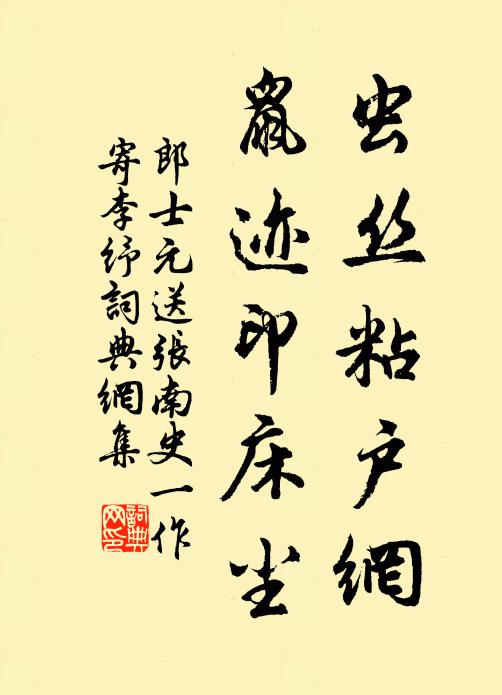 虫丝粘户網
鼠迹印床尘
郎士元送張南史一作
寄李纾詞典網集
詞典
网印